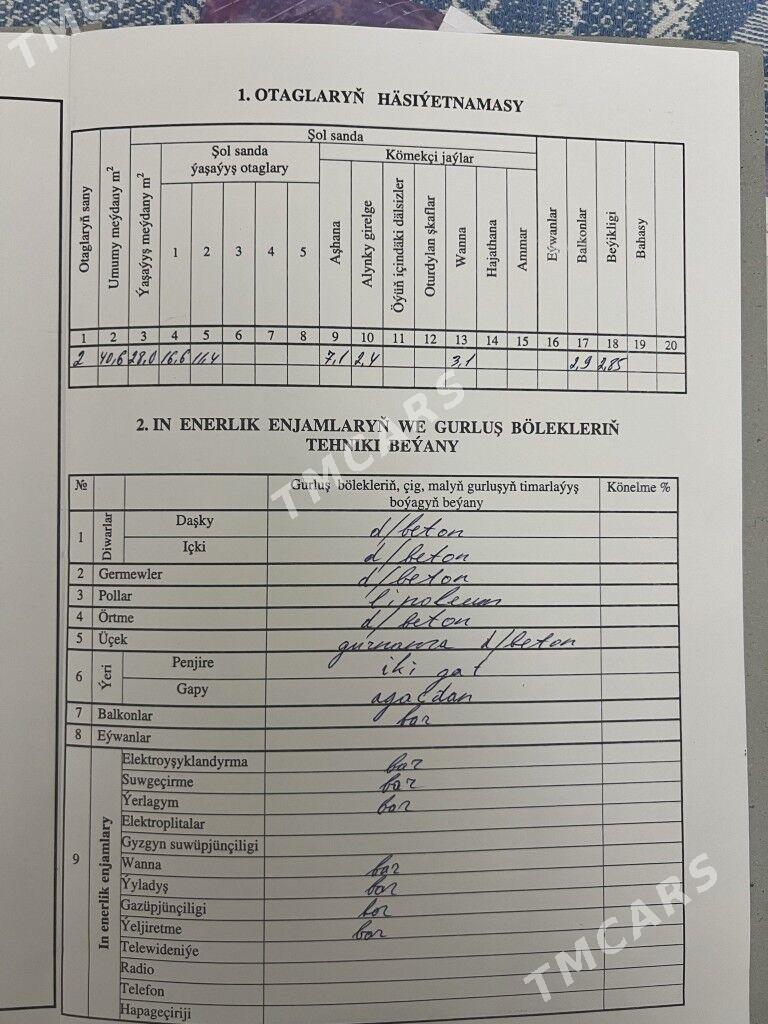 TMCARS
1. OTAGLARYŇ HÄSIÝETNAMASY
Otaglaryň sany
Umumy meýdany m²
Şol sanda
Ýaşaýyş meýdany m²
Şol sanda
ýaşaýyş otaglary
1 2 3 4 5
Kömekçi jaýlar
Aşhana
Alynky girelge
Öýüň içindäki dälsizler
Oturdylyn şkaflar
Wanna
Hajathana
Ammar
Eýwanlar
Balkonlar
Beýikligi
Bahasy
1 2 3 4 5 6 7 8 9 10 11 12 13 14 15 16 17 18 19 20
2 40,6 28,0 16,6 11,4 7,1 2,4 3,1 2,9 2,85
2. IN ENERLIK ENJAMLARYŇ WE GURLUŞ BÖLEKLERIŇ
TEHNIKI BEÝANY
TMCARS
№ Gurluş bölekleriň, çig, malyň gurluşyň timarlaýyş
boýagyň beýany
Könelme %
1 Diwarlar Daşky d/beton
Içki d/beton
2 Germewler d/beton
3 Pollar linoleum
4 Örtme d/beton
5 Üçek gurnama d/beton
6 Ýeri Penjire iki gat
Gapy agaçdan
7 Balkonlar bar
8 Eýwanlar
9 In enerlik enjamlary
Elektroyşyklandyrma bar
Suwgeçirme bar
Ýerlagym bar
Elektroplitalar
Gyzgyn suwüpjünçiligi
Wanna bar
Ýyladyş bar
Gazüpjünçiligi bar
Ýeljiretme bar
Telewideniýe
Radio
Telefon
Hapageçiriji
TMCARS